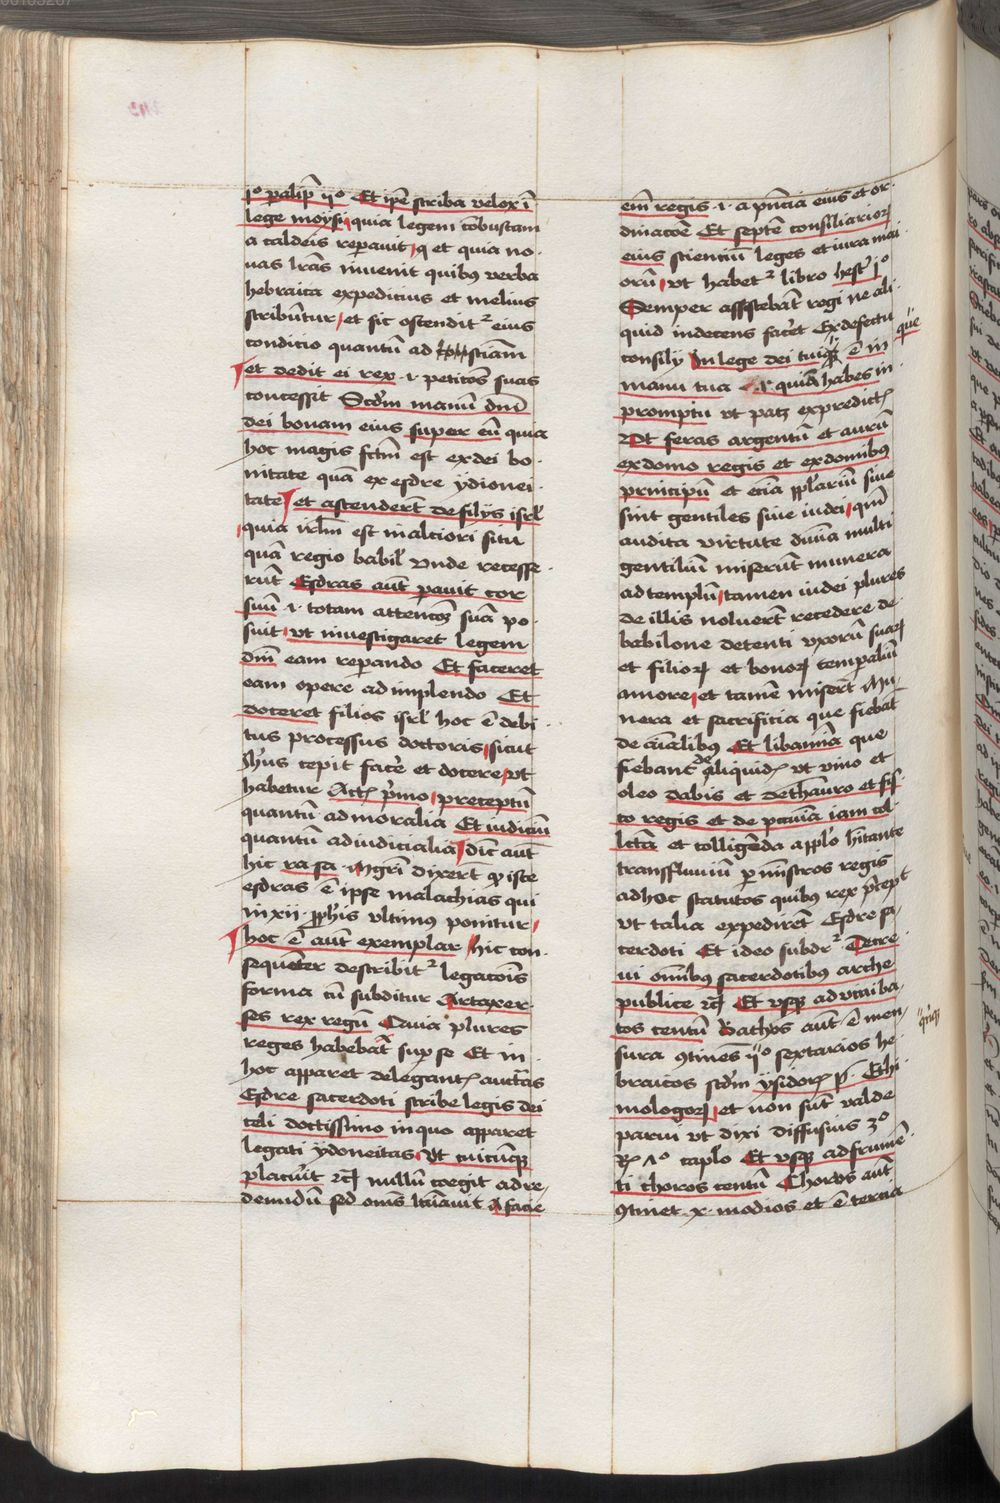 jº palip̄ ijº Et ip̄e scriba velox ī
lege moysi quia legem cōbustam
a caldeis reparauit q et quia no
uas lr̄as inuenit quibus verba
hebraica expeditius et melius
scribūtur et sic ostenditᵘʳ eius
conditio quantū ad sciam
et dedit ei rex .i. petitōes suas
concessit Scd̄m manū dm̄
dei bonam eius super eū quia
hoc magis fctm̄ est ex dei bo
nitate quā ex esdre ydionei
tate et ascenderūt de filijs isrl̄
quia irlm̄ est in alciori situ
quā regio babil̄ vnde recesse
rūt Esdras aūt parauit cor
suū .i. totam attentōem suā po
suit vt inuestigaret legem
dm̄ eam reparando Et faceret
eam opere adimplendo Et
doceret filios isrl̄ hoc ē debi
tus processus doctoris sicut
Jh̄us cepit facēre et docere vt
habetur Act̄ p̄mo preceptū
quantū ad moralia Et iudiciū
quantū ad iudicialia dic̄ aūt
hic ra sa mgr̄i dixerūt q̄ iste
esdras ē ipse malachias qui
in xij pp̄his vltimus ponitur
hoc ē aūt exemplar hic con
sequēter describitᵘʳ legacōis
forma cū subditur Artaxer
ses rex regū Quia plures
reges habebat sup se Et in
hoc apparet delegantis auctās
Esdre sacerdoti scribe legis dei
celi doctissimo in quo apparet
legati ydoneitas Vt cuicūq
placuīt 2c̄ nullū coegit ad re
deundū sed om̄s lic̄nauit A facie
em̄ regis .i. a pn̄cia eius et or
dinacōe Et septē consiliarior
eius scienciū leges et iura mai
orū vt habetᵘʳ libro hest̄ jº
Semper assistebāt regi ne ali
quid indecens facēt ex defectu
consilij In lege dei tui que ē in
manu tua .i. quā habes in
promptu vt patz ex predict̄
Vt feras argentū et aurū
ex domo regis et ex domibus
principū et eciā pp̄lariū siue
sint gentiles siue iudei qm̄
audita virtute diuīa multi
gentiliū miserūt munera
ad templū tamen iudei plures
de illis noluerūt recedere de
babilone detenti vxorū suar
et filior et bonor temp̄aliū
amore et tamē miserūt Mu
nera et sacrificia que fiebāt
de aīalibus Et libamīa que
fiebant de liquid̄ vt vino et
oleo dabis et de thauro et fis
co regis et de ꝓuīcia iam col
lc̄ta et colligēda a pplo hītante
transfluuiū p mīstros regis
ad hoc statutos quibus rex p̄cept̄
vt talia expedirēt Esdre sa
cerdoti Et ideo subdrᵘʳ Decre
ui om̄ibus sacerdotibus arche
publice 2c̄ Et vsq ad vini ba
tos centū Bathos aūt ē men
sura ꝯtinēs ijº sextarios he
braicos scd̄m ysidor p̄ Ethi
mologor et non sūt valde
parui vt dixi diffusius 3º
R̄ ʌº caplo Et vsq ad frumē
ti choros centū Chorus aūt
ꝯtinet x modios et ē tercia